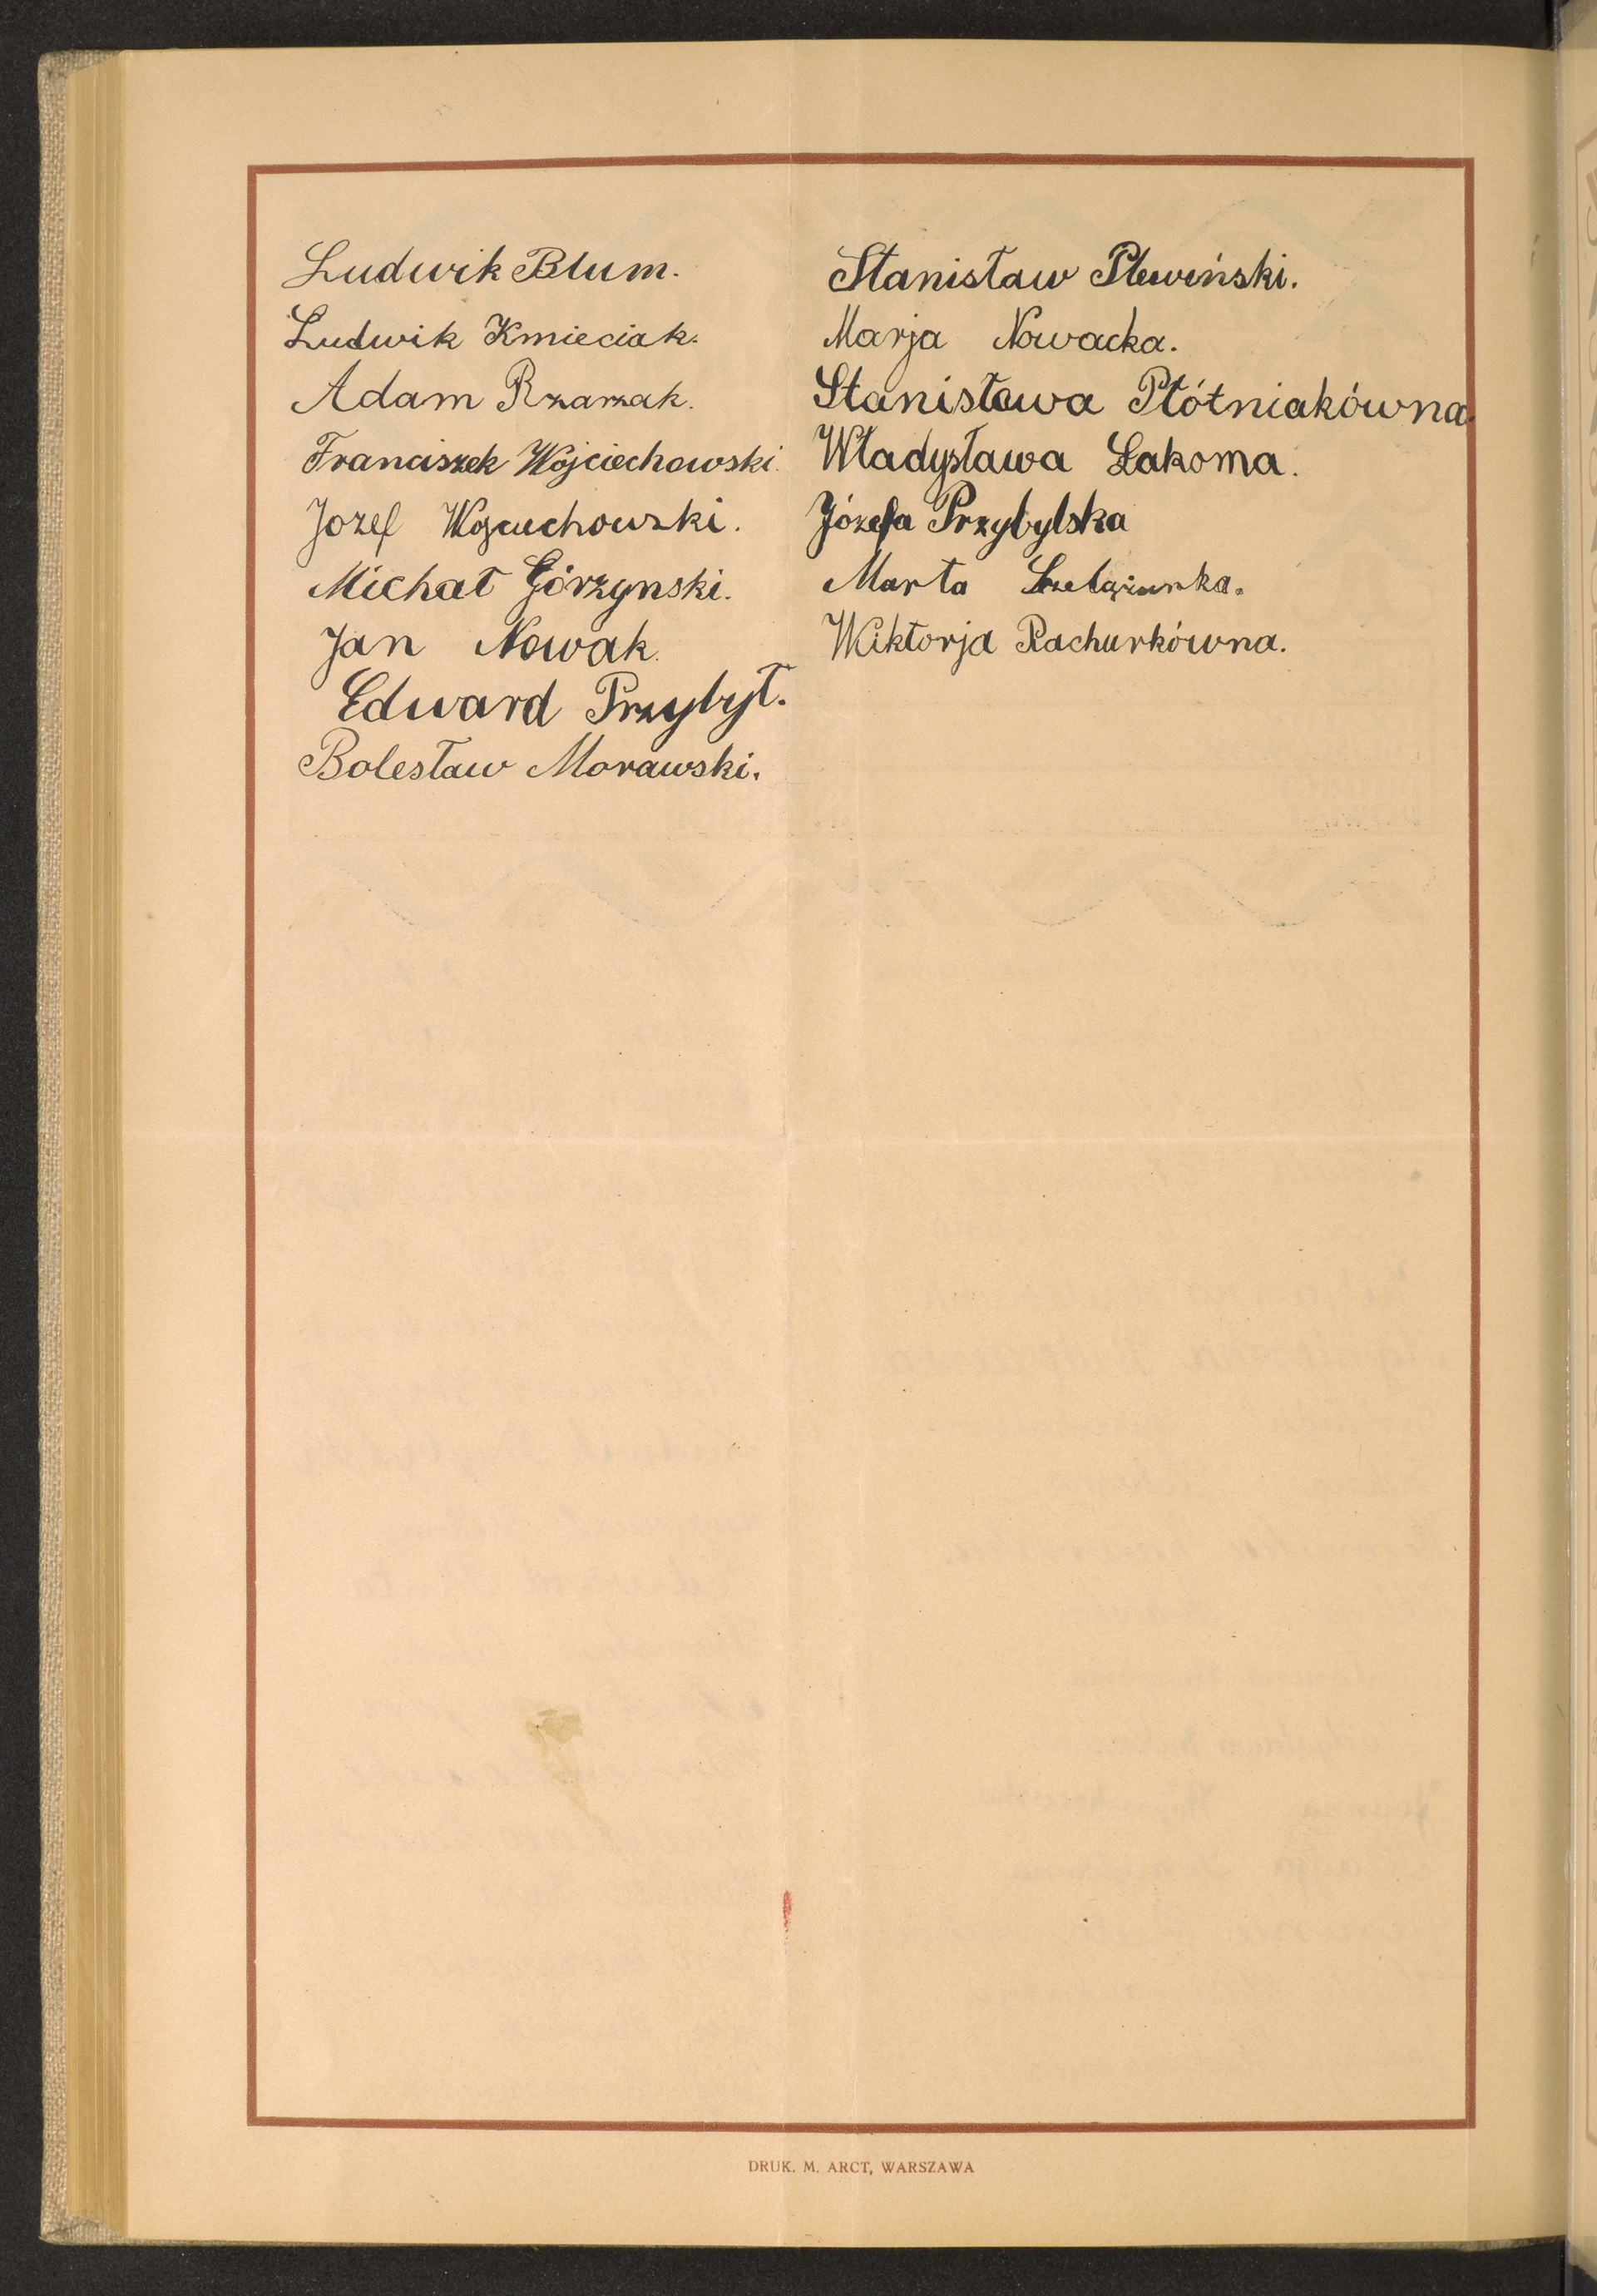 Ludwik Blum.
Ludwik Kmieciak.
Adam Rzarzak.
Franciszek Wojciechowski.
Jozef Wojciechowski.
Michał Górzynski.
Jan Nowak.
Edward Przybył.
Bolesław Morawski.
Stanisław Plewiński.
Marja Nowacka.
Stanisława Płótniakówna.
Władysława Łakoma.
Józefa Przybylska
Marta
Wiktorja Pachurkówna.
DRUK. M. ARCT, WARSZAWA